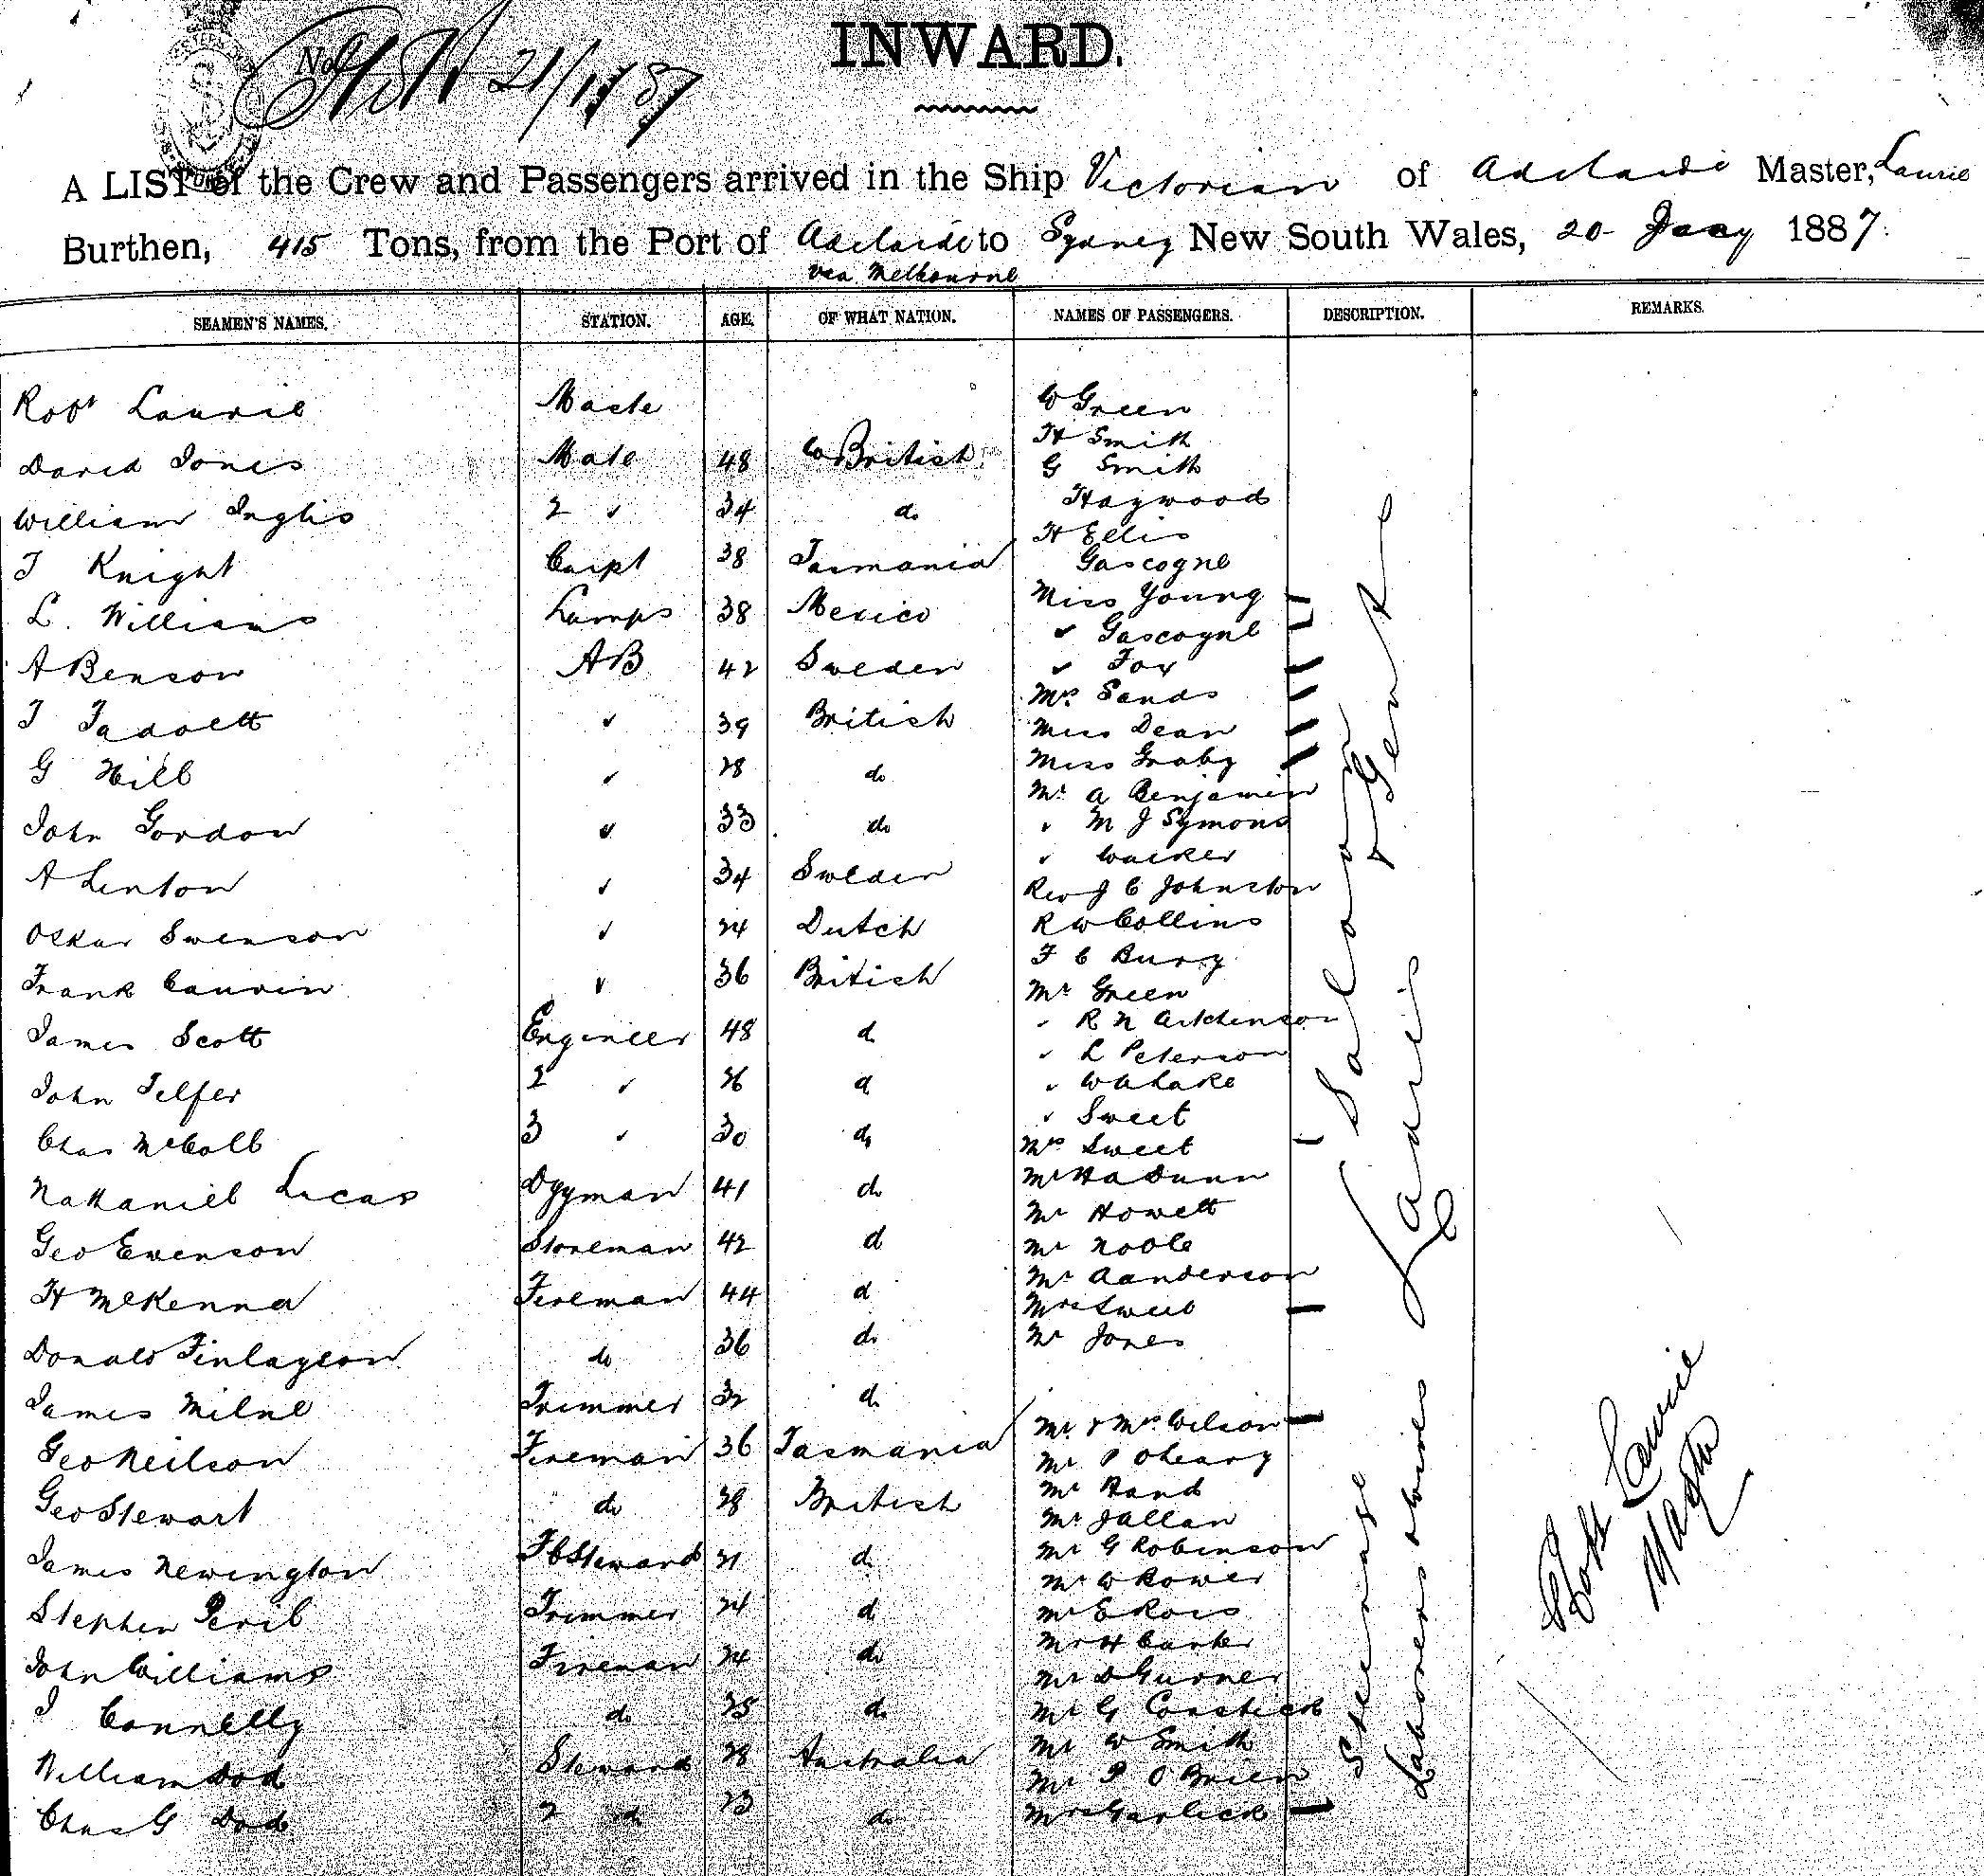 INWARD.
No 21/1/87
A LIST of the Crew and Passengers arrived in the Ship Victorian of Adelaide Master, Laurie
Burthen, 415 Tons, from the Port of Adelaide to Sydney New South Wales, 20 Jany 1887.
via Melbourne
SEAMEN'S NAMES. STATION. AGE. OF WHAT NATION. NAMES OF PASSENGERS. DESCRIPTION. REMARKS.
Robt Laurie
David Jones Mate 48 British
William Inglis 2 " 34 do
T Knight Carpt 38 Tasmania
L. Williams Lamps 38 Mexico
A Benson AB 42 Sweden
T " 39 British
G Hill " 28 do
John Gordon " 33 do
A Lenton " 34 Sweden
Oskar Swenson " 24 Dutch
Frank " 36 British
James Scott Engineer 48 d
John Telfer 2 " 26 d
Chas McColl 3 " 30 do
Nathaniel Lucas 41 do
Geo Evenson Storeman 42 d
H McKenna Fireman 44 d
Donald Finlayson do 36 do
James Milne Trimmer 32 do
Geo Neilson Fireman 36 Tasmania
Geo Stewart do 28 British
James Newington FC Steward 21 d
Stephen Trimmer 24 d
John Williams Fireman 24 do
J Connelly do 25 do
William Dod Steward 28 Australia
Chas G Dod 2 do 23 do
W Green
H Smith
G Smith
Haywood
H Ellis
Gascogne
Miss Young
" Gascoyne
" Fox
Mrs Sands
Miss Dean
Miss Graby
Mr A Benjamin
" M J Symons
" Walker
Rev J C Johnston
R W Collins
F C Bury
Mr Green
" R N Aitchenson
" L Peterson
" W H Lake
" Sweet
Mrs Sweet
Mr H A Dunn
Mr Howett
Mr Noble
Mr A Anderson
Mrs
Mr Jones
Mr & Mrs Wilson
Mr P OLeary
Mr Hand
Mr Jallan
Mr G Robinson
Mr W Rower
Mr E Ross
Mr H
Mr D Gurner
Mr G
Mr W Smith
Mr P O Brien
Mrs Garlick
Saloon
Ladies & Gents
Steerage
Labourers & wives
Robt Laurie
Master